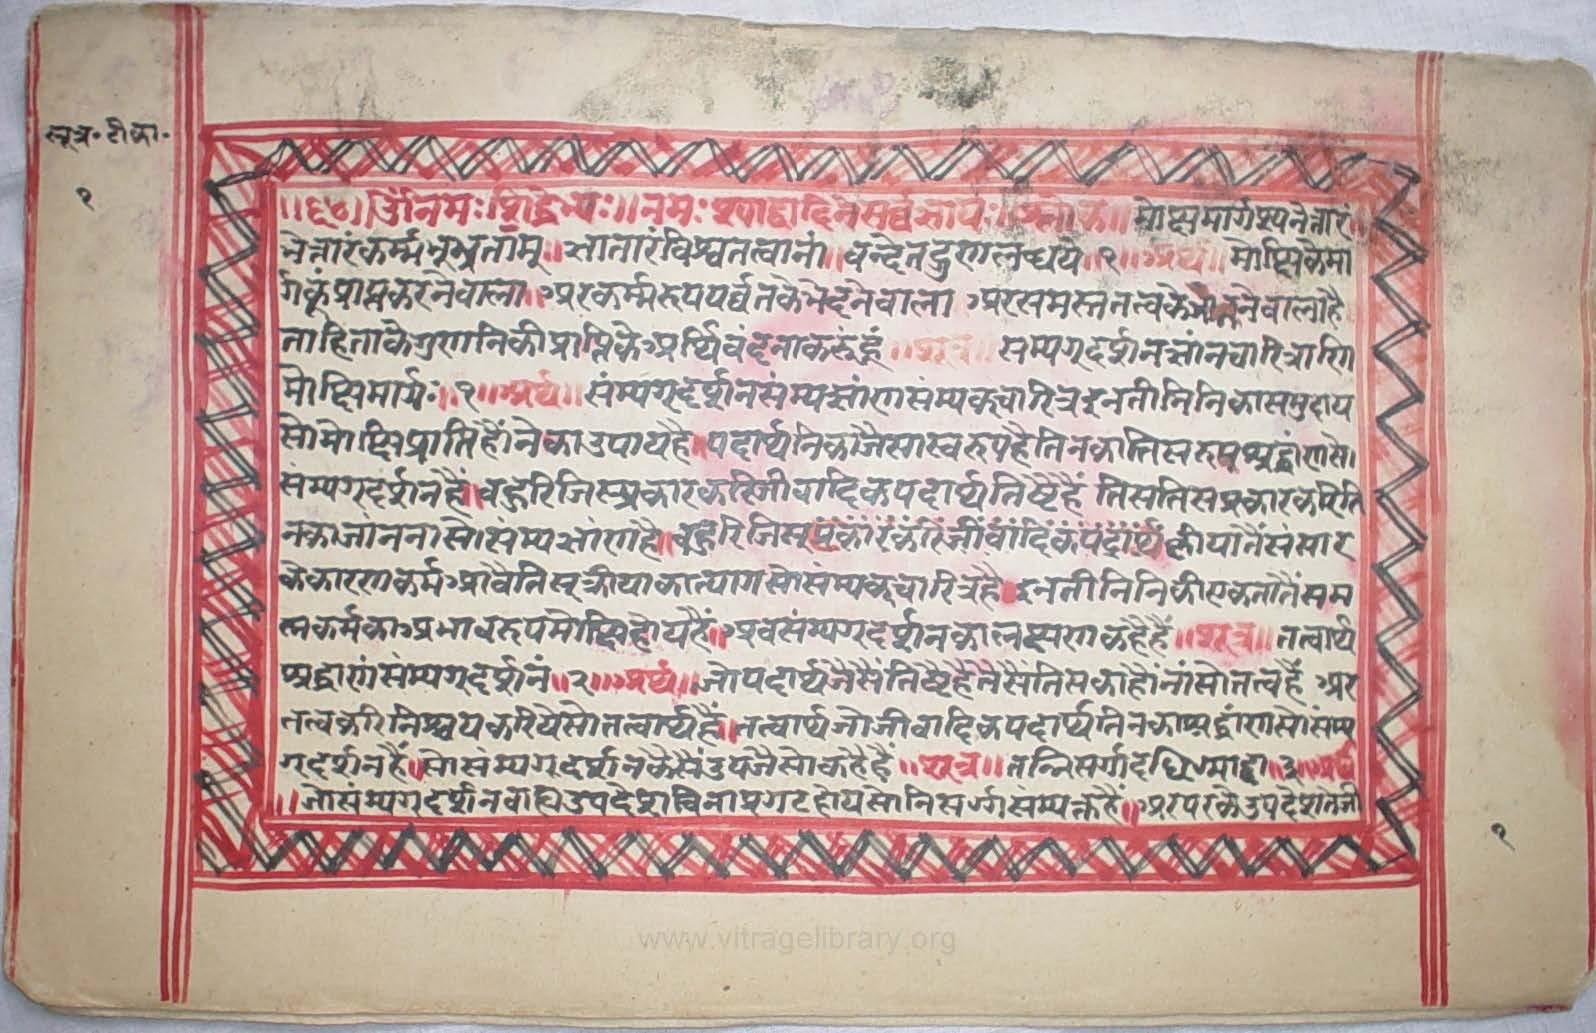 सूत्र॰ टीका॰
१
॥६०॥ ॐ नमः सिद्धेभ्यः॥ नमः स्याद्वादिने सर्वज्ञाय॥ श्लोक॥ मोक्षमार्गस्य नेतारं॥
भेत्तारं कर्म्मभूभृताम्॥ ज्ञातारं विश्वतत्वानां॥ वन्दे तद्गुणलब्धये॥१॥ अर्थ॥ मोक्षिके मा
र्गकूं प्राप्त करने वाला॥ अर कर्म्मरुप पर्व्वतके भेदने वाला अर समस्त तत्वके जानने वाला है
ताहि ताके गुणनिकी प्राप्तिके अर्थि वंदना करूं हूं॥ सूत्र॥ सम्यग्दर्शनज्ञांनचारित्राणि
मोक्षिमार्गः॥१॥ अर्थ॥ संम्यग्दर्शन संम्यज्ञांण संम्यक्चारित्र इन तीनिनिका समुदाय
सो मोक्षि प्राप्ति हौंनेका उपाय है॥ पदार्थनिका जैसा स्वरुप है तिनका तिसरुप श्रद्धांण सो
संम्यग्दर्शन हैं॥ बहुरि जिस प्रकार करि जीवादिक पदार्थ तिष्टै हैं तिस तिस प्रकार करि ति
नका जांनना सो संम्यज्ञांण है॥ बहुरि जिस प्रकार करि जीवादिक पदार्थ क्रीया तैं संसार
के कारण कर्म आवै तिस क्रीया का त्याग सो संम्यक्चारित्र है॥ इन तीनिनिकी एकता तैं सम
स्त कर्मका अभावरुप मोक्षि होय हैं॥ अव संम्यग्दर्शनका लक्षण कहै हैं॥ सूत्र॥ तत्वार्थ
श्रद्धाणं संम्यग्दर्शनं॥२॥ अर्थ॥ जो पदार्थ जैसैं तिष्टै है तैसैं तिसका हौंनां सो तत्व हैं अर
तत्वकरि निश्चय करिये सो तत्वार्थ हैं॥ तत्वार्थ जो जीवादिक पदार्थ तिनका श्रद्धांण सो संम्य
ग्दर्शन हैं॥ सो संम्यग्दर्शन कैसैं उपजै सो कहै हैं॥ सूत्र॥ तन्निसर्गादधिगमाद्वा॥३॥ अर्थ
॥जो संम्यग्दर्शन वाह्य उपदेश विना प्रगट होय सो निसर्ग्ग संम्यक्त हैं॥ अर परके उपदेश तै जी
१
www.vitragelibrary.org